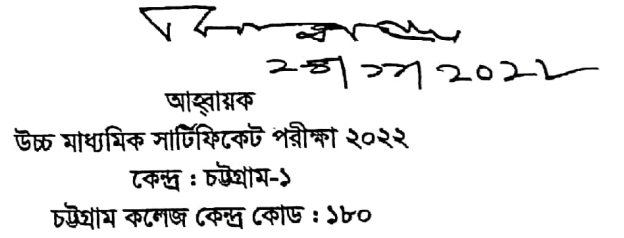 আহ্বায়ক
উচ্চ মাধ্যমিক সার্টিফিকেট পরীক্ষা ২০২২
কেন্দ্র : চট্টগ্রাম-১
চট্টগ্রাম কলেজ কেন্দ্র কোড : ১৮০